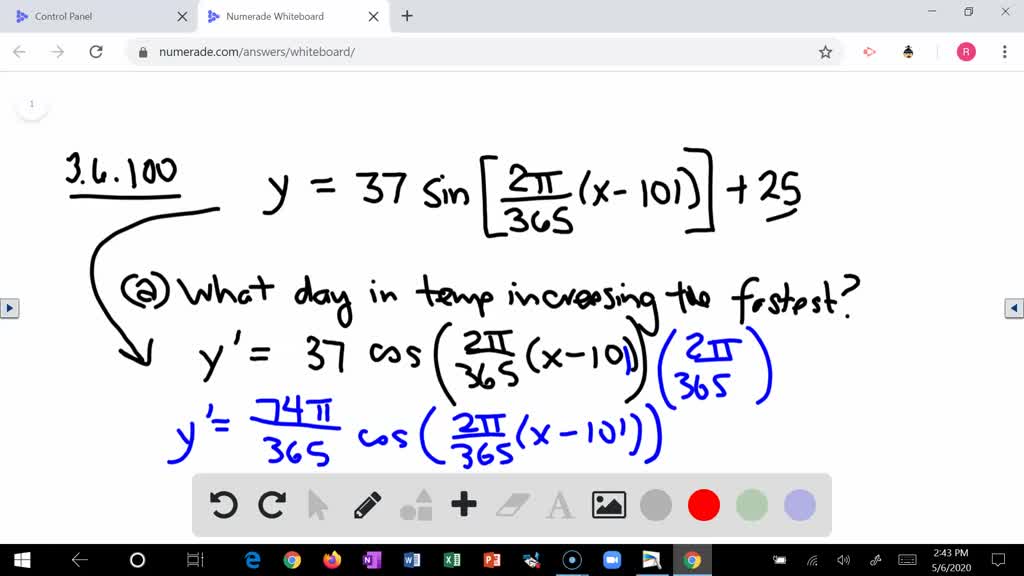 Control Panel
Numerade Whiteboard
numerade.com/answers/whiteboard/
R
1
3.6.100
y = 37 sin[2π/365 (x-101)] + 25
(a) What day in temp increasing the fastest?
y' = 37 cos(2π/365 (x-101))(2π/365)
y' = 74π/365 cos(2π/365 (x-101))
A
2:43 PM
5/6/2020